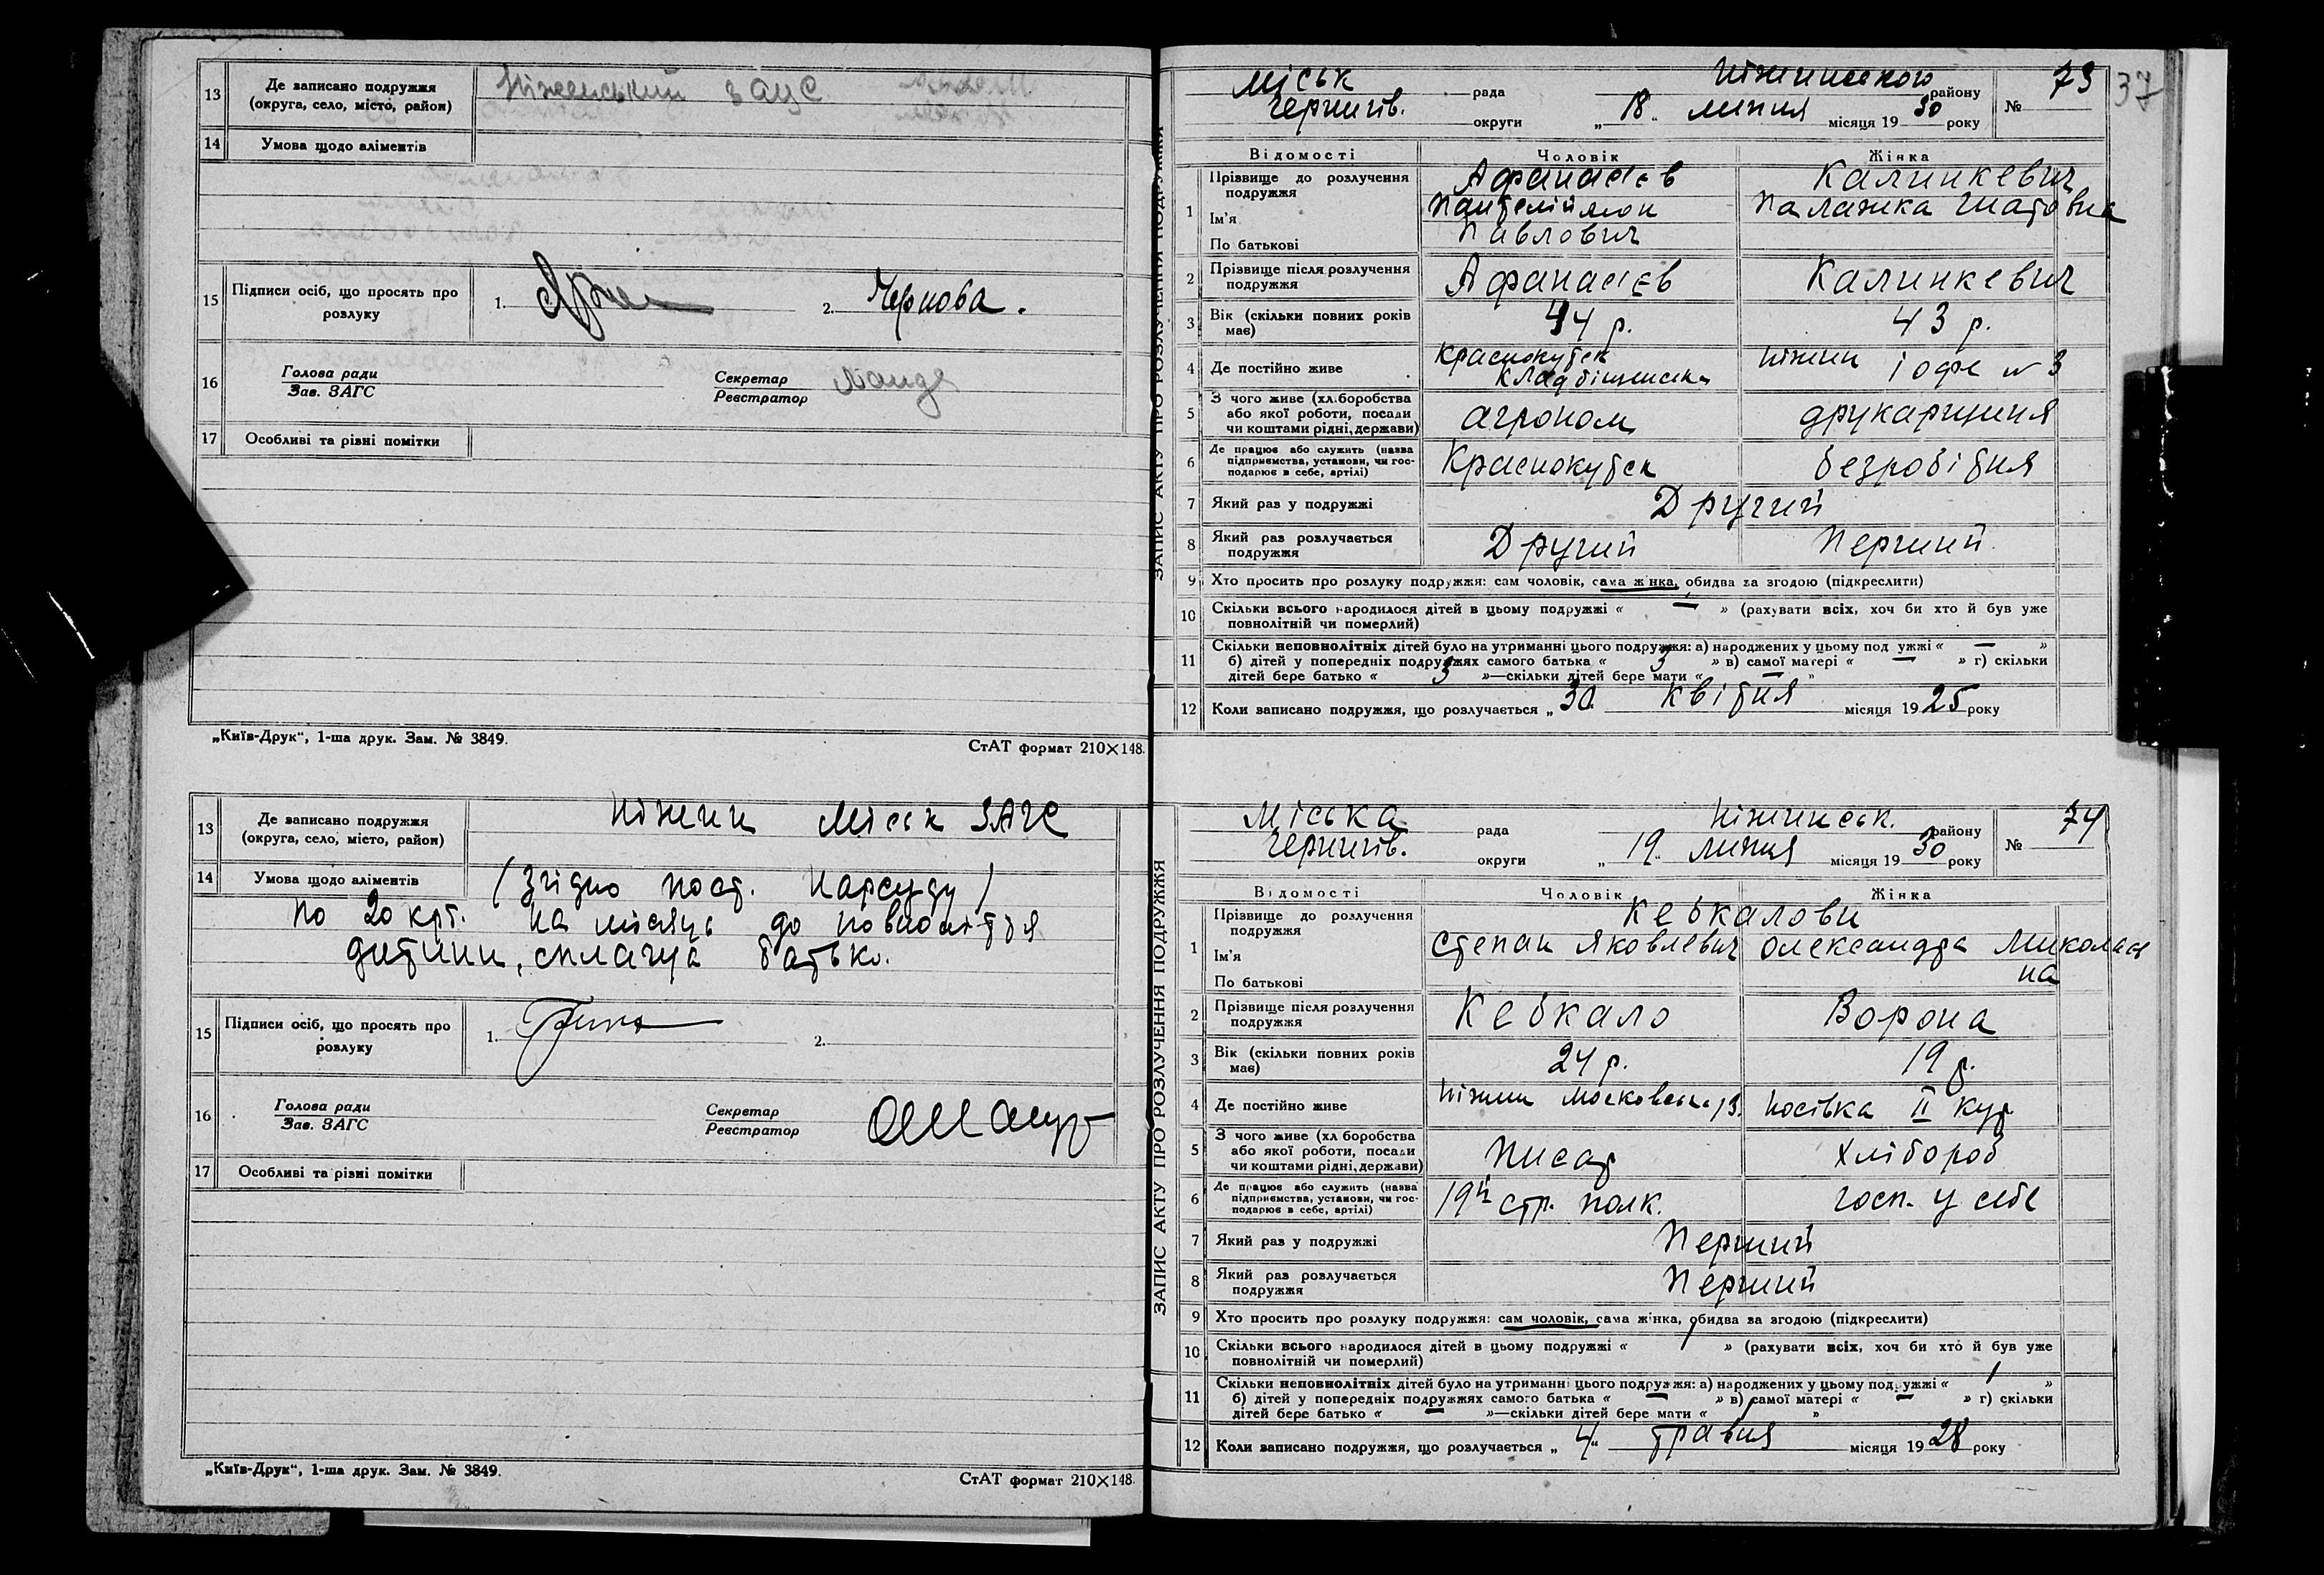 13 Де записано подружжя (округа, село, місто, район) Ніженський ЗАЦС
14 Умова щодо аліментів
15 Підписи осіб, що просять про розлуку 1. 2. Чернова.
16 Голова ради Зав. ЗАГС Секретар Реєстратор
17 Особливі та різні помітки
„Київ-Друк“, 1-ша друк. Зам. № 3849. СтАТ формат 210×148.
13 Де записано подружжя (округа, село, місто, район) Ніжин Міськ ЗАГС
14 Умова щодо аліментів (Згідно пост. Нарсуду)
по 20 крб. на місяць до повноліття
дитини, сплачує батько.
15 Підписи осіб, що просять про розлуку 1. 2.
16 Голова ради Зав. ЗАГС Секретар Реєстратор
17 Особливі та різні помітки
„Київ-Друк“, 1-ша друк. Зам. № 3849. СтАТ формат 210×148.
ЗАПИС АКТУ ПРО РОЗЛУЧЕННЯ ПОДРУЖЖЯ
37
Міськ рада Ніжинського району № 73
Чернигів. округи „18“ липня місяця 1930 року
Відомості Чоловік Жінка
1 Прізвище до розлучення подружжя Афанасієв Калинкевич
Ім'я Пантелиймон Палажка Гнатовна
По батькові Павлович
2 Прізвище після розлучення подружжя Афанасієв Калинкевич
3 Вік (скільки повних років має) 44 р. 43 р.
4 Де постійно живе Краснокутськ Кладбіщенська Ніжин Іофе № 3
5 З чого живе (хл.боробства або якої роботи, посади чи коштами рідні, держави) агроном друкарщиця
6 Де працює або служить (назва підприємства, установи, чи господарює в себе, артілі) Краснокутск безробітня
7 Який раз у подружжі Другий
8 Який раз розлучається подружжя Другий Перший
9 Хто просить про розлуку подружжя: сам чоловік, сама жінка, обидва за згодою (підкреслити)
10 Скільки всього народилося дітей в цьому подружжі « — » (рахувати всіх, хоч би хто й був уже
повнолітній чи померлий)
11 Скільки неповнолітніх дітей було на утриманні цього подружжя: а) народжених у цьому подружжі « — »
б) дітей у попередніх подружжях самого батька « 3 » в) самої матері « — » г) скільки
дітей бере батько « 3 »—скільки дітей бере мати « — »
12 Коли записано подружжя, що розлучається „30“ квітня місяця 1925 року
ЗАПИС АКТУ ПРО РОЗЛУЧЕННЯ ПОДРУЖЖЯ
Міська рада Ніжинськ. району № 74
Чернигів. округи „19“ липня місяця 1930 року
Відомості Чоловік Жінка
1 Прізвище до розлучення подружжя Кебкалови
Ім'я Степан Яковлевич Олександра Миколаєвна
По батькові
2 Прізвище після розлучення подружжя Кебкало Ворона
3 Вік (скільки повних років має) 24 р. 19 р.
4 Де постійно живе Ніжин Московська 13. Носівка II кут
5 З чого живе (хл боробства або якої роботи, посади чи коштами рідні, держави) Писар Хлібороб
6 Де працює або служить (назва підприємства, установи, чи господарює в себе, артілі) 19й стр. полк. госп. у себе
7 Який раз у подружжі Перший
8 Який раз розлучається подружжя Перший
9 Хто просить про розлуку подружжя: сам чоловік, сама жінка, обидва за згодою (підкреслити)
10 Скільки всього народилося дітей в цьому подружжі « 1 » (рахувати всіх, хоч би хто й був уже
повнолітній чи померлий)
11 Скільки неповнолітніх дітей було на утриманні цього подружжя: а) народжених у цьому подружжі « 1 »
б) дітей у попередніх подружжях самого батька « — » в) самої матері « — » г) скільки
дітей бере батько « — »—скільки дітей бере мати « 1 »
12 Коли записано подружжя, що розлучається „4“ травня місяця 1928 року